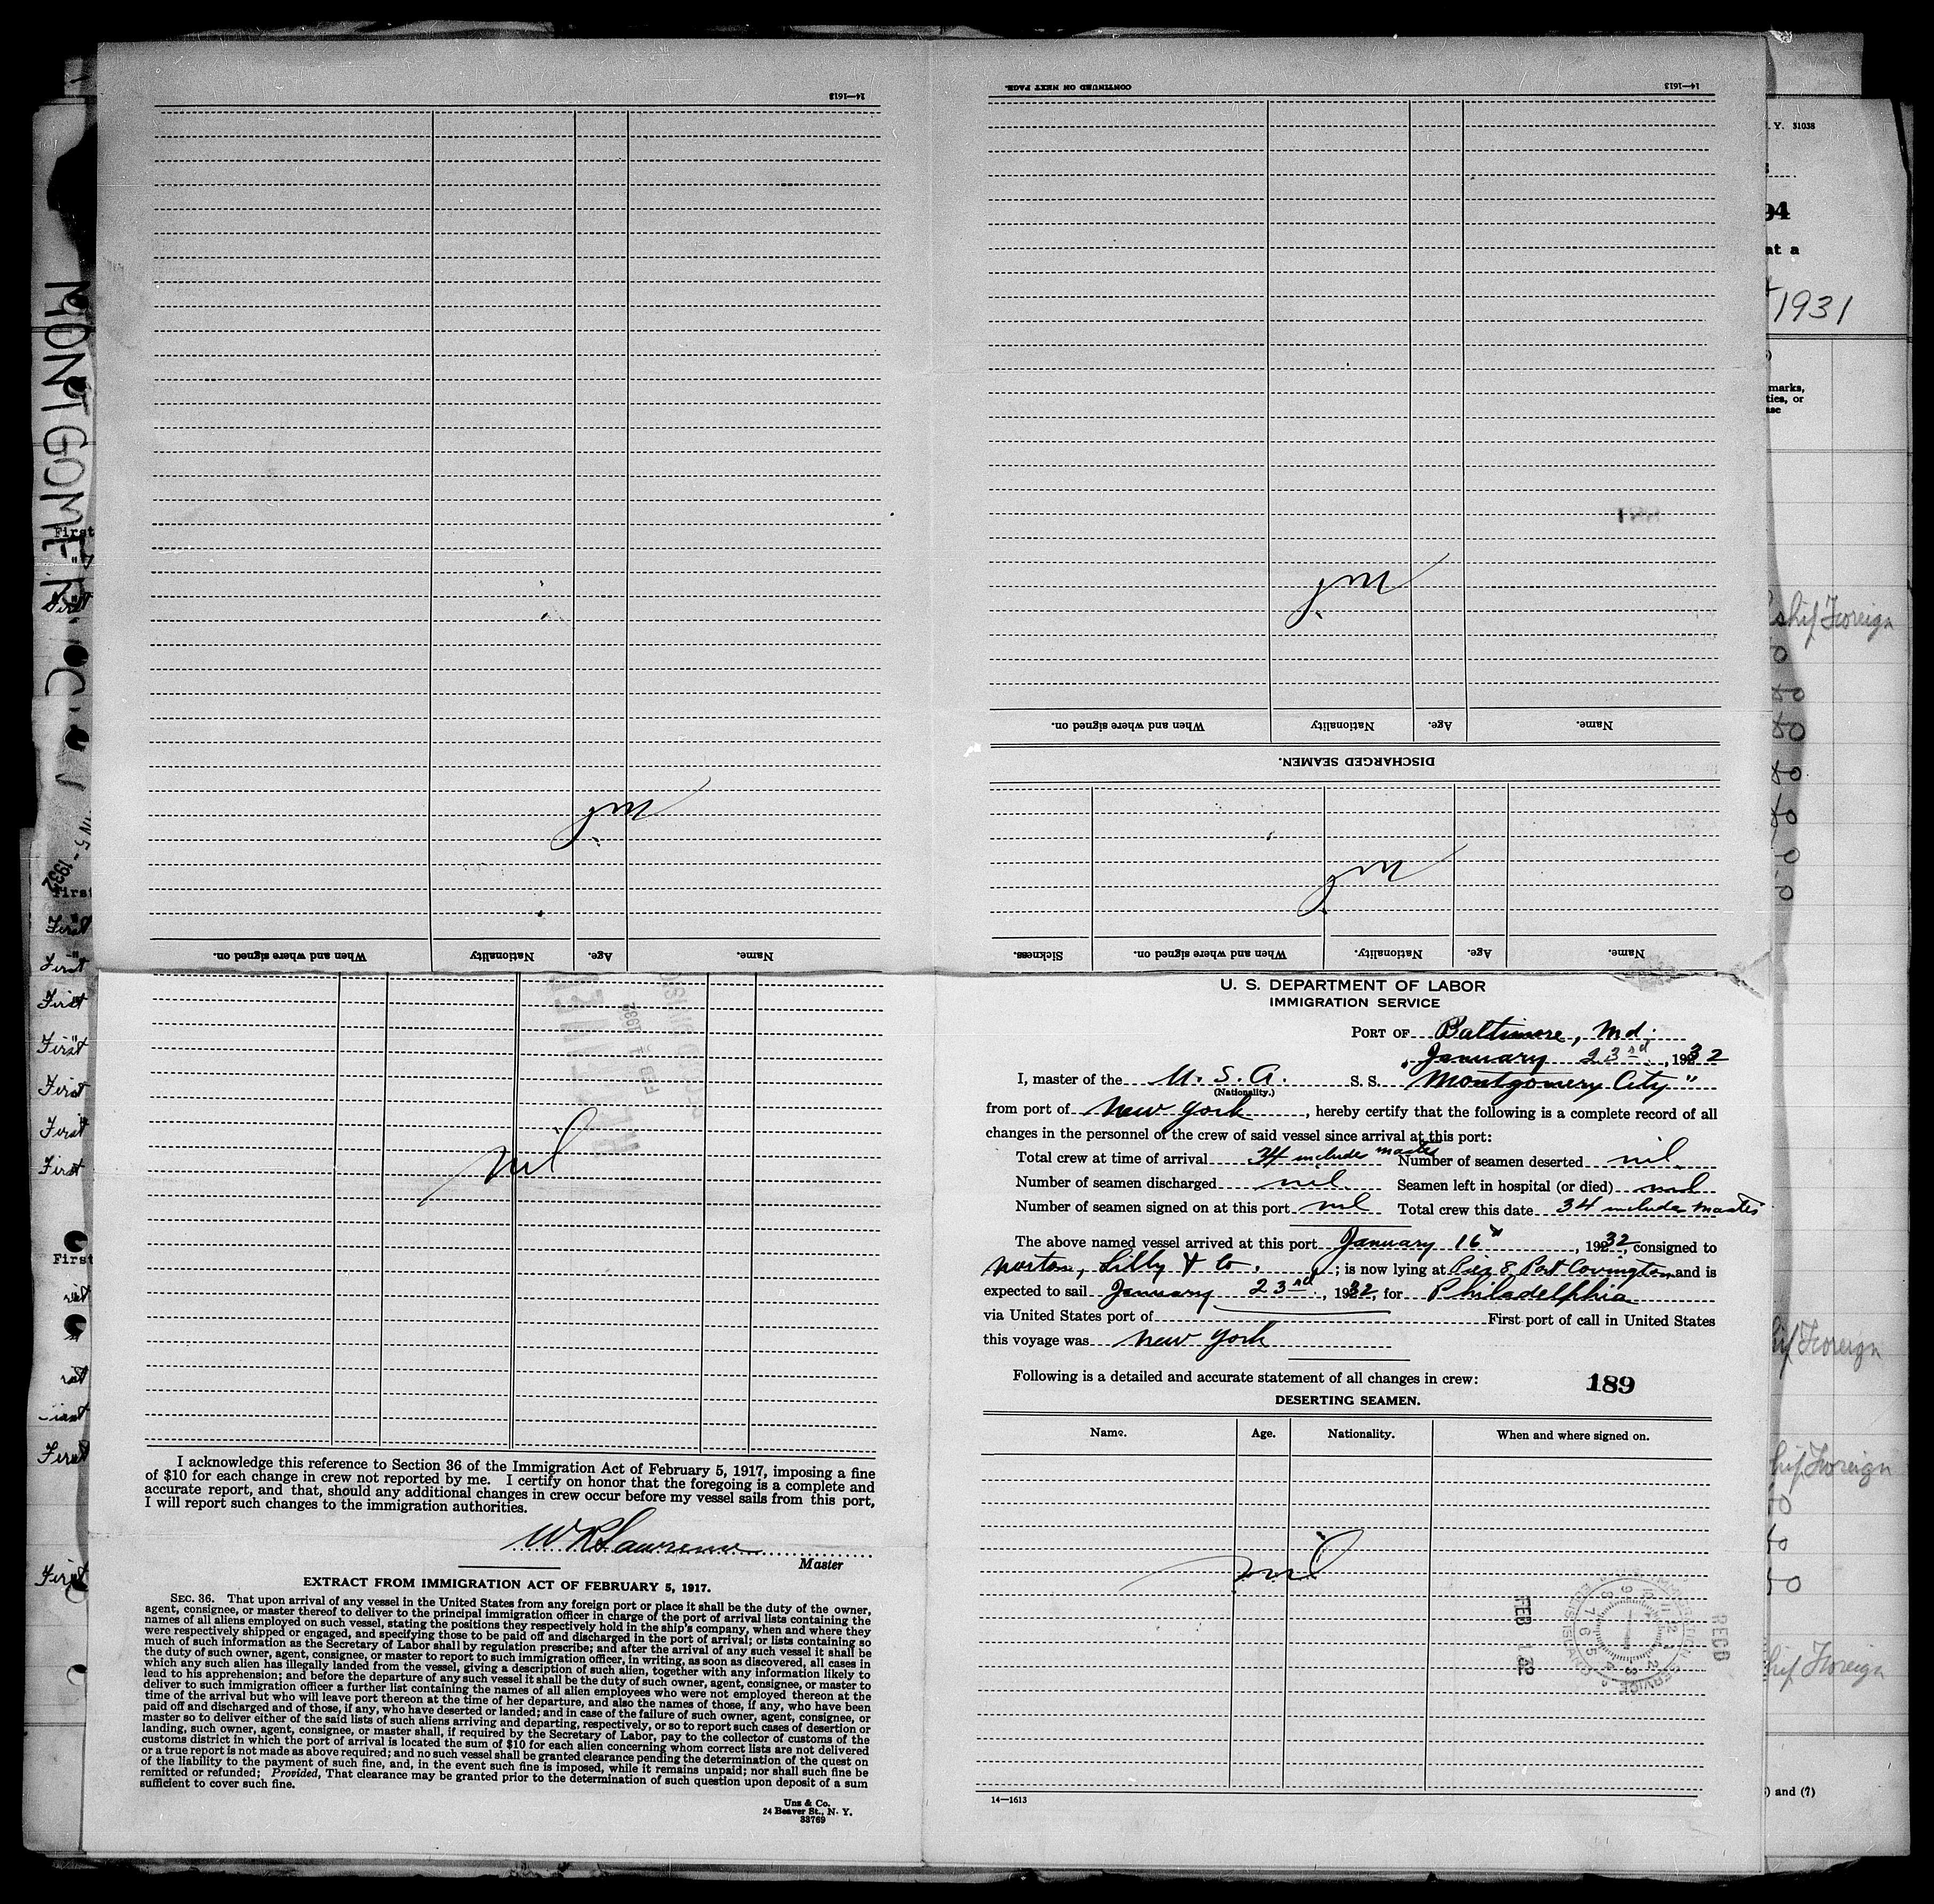 14—1613
CONTINUED ON NEXT PAGE.
14—1613
Y. 31038
94
at a
1931
marks,
ties, or
MONTGOMERY CITY
First
nil
Name. Age. Nationality. When and where signed on.
DISCHARGED SEAMEN.
ship Foreign
nil
nil
Name. Age. Nationality When and where signed on.
Name. Age. Nationality. When and where signed on. Sickness.
1932
First
First
First
First
First
First
First
First
First
First
First
nil
I acknowledge this reference to Section 36 of the Immigration Act of February 5, 1917, imposing a fine
of $10 for each change in crew not reported by me. I certify on honor that the foregoing is a complete and
accurate report, and that, should any additional changes in crew occur before my vessel sails from this port,
I will report such changes to the immigration authorities.
W R Lawrence
Master
EXTRACT FROM IMMIGRATION ACT OF FEBRUARY 5, 1917.
SEC. 36. That upon arrival of any vessel in the United States from any foreign port or place it shall be the duty of the owner,
agent, consignee, or master thereof to deliver to the principal immigration officer in charge of the port of arrival lists containing the
names of all aliens employed on such vessel, stating the positions they respectively hold in the ship's company, when and where they
were respectively shipped or engaged, and specifying those to be paid off and discharged in the port of arrival; or lists containing so
much of such information as the Secretary of Labor shall by regulation prescribe; and after the arrival of any such vessel it shall be
the duty of such owner, agent, consignee, or master to report to such immigration officer, in writing, as soon as discovered, all cases in
which any such alien has illegally landed from the vessel, giving a description of such alien, together with any information likely to
lead to his apprehension; and before the departure of any such vessel it shall be the duty of such owner, agent, consignee, or master to
deliver to such immigration officer a further list containing the names of all alien employees who were not employed thereon at the
time of the arrival but who will leave port thereon at the time of her departure, and also the names of those, if any, who have been
paid off and discharged and of those, if any, who have deserted or landed; and in case of the failure of such owner, agent, consignee, or
master so to deliver either of the said lists of such aliens arriving and departing, respectively, or so to report such cases of desertion or
landing, such owner, agent, consignee, or master shall, if required by the Secretary of Labor, pay to the collector of customs of the
customs district in which the port of arrival is located the sum of $10 for each alien concerning whom correct lists are not delivered
or a true report is not made as above required; and no such vessel shall be granted clearance pending the determination of the quest on
of the liability to the payment of such fine, and, in the event such fine is imposed, while it remains unpaid; nor shall such fine be
remitted or refunded; Provided, That clearance may be granted prior to the determination of such question upon deposit of a sum
sufficient to cover such fine.
Unz & Co.
24 Beaver St., N. Y.
33769
U. S. DEPARTMENT OF LABOR
IMMIGRATION SERVICE
PORT OF Baltimore, Md.
January 23rd, 1932
I, master of the U. S. A. S. S. "Montgomery City"
(Nationality.)
from port of New York, hereby certify that the following is a complete record of all
changes in the personnel of the crew of said vessel since arrival at this port:
Total crew at time of arrival 34 includes master Number of seamen deserted nil
Number of seamen discharged nil. Seamen left in hospital (or died) nil
Number of seamen signed on at this port nil Total crew this date 34 includes master
The above named vessel arrived at this port January 16th, 1932, consigned to
Norton, Lilly & Co.; is now lying at Pier 8, Port Covington and is
expected to sail January 23rd., 1932, for Philadelphia
via United States port of First port of call in United States
this voyage was New York
Following is a detailed and accurate statement of all changes in crew:
189
DESERTING SEAMEN.
Name. Age. Nationality. When and where signed on.
nil
FEB 1 32
RECD
14—1613
ship Foreign
ship Foreign
ship Foreign
and (7)